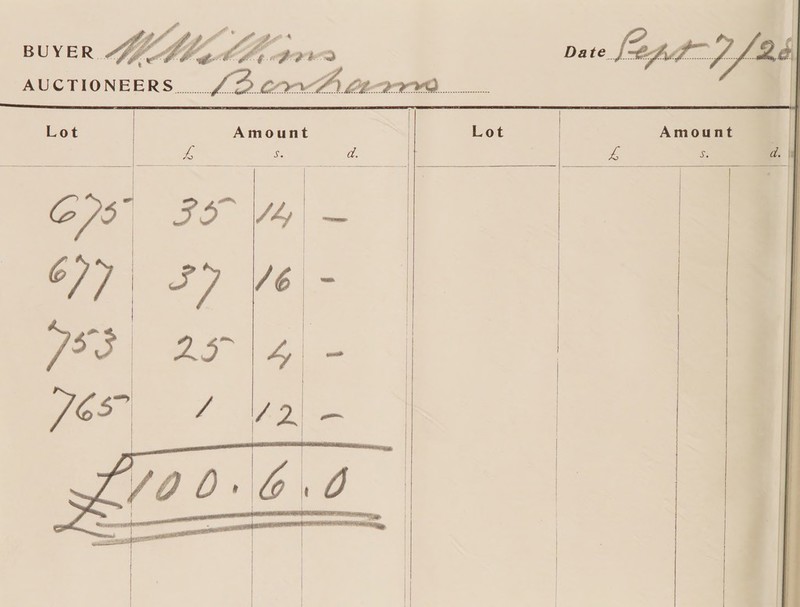 BUYER W. Wilkins Date Sept 7/28
AUCTIONEERS Bonhams
Lot Amount Lot Amount
£ s. d. £ s. d.
675 35 14 —
677 37 16 -
753 25 4 -
765 1 12 -
£100.6.0